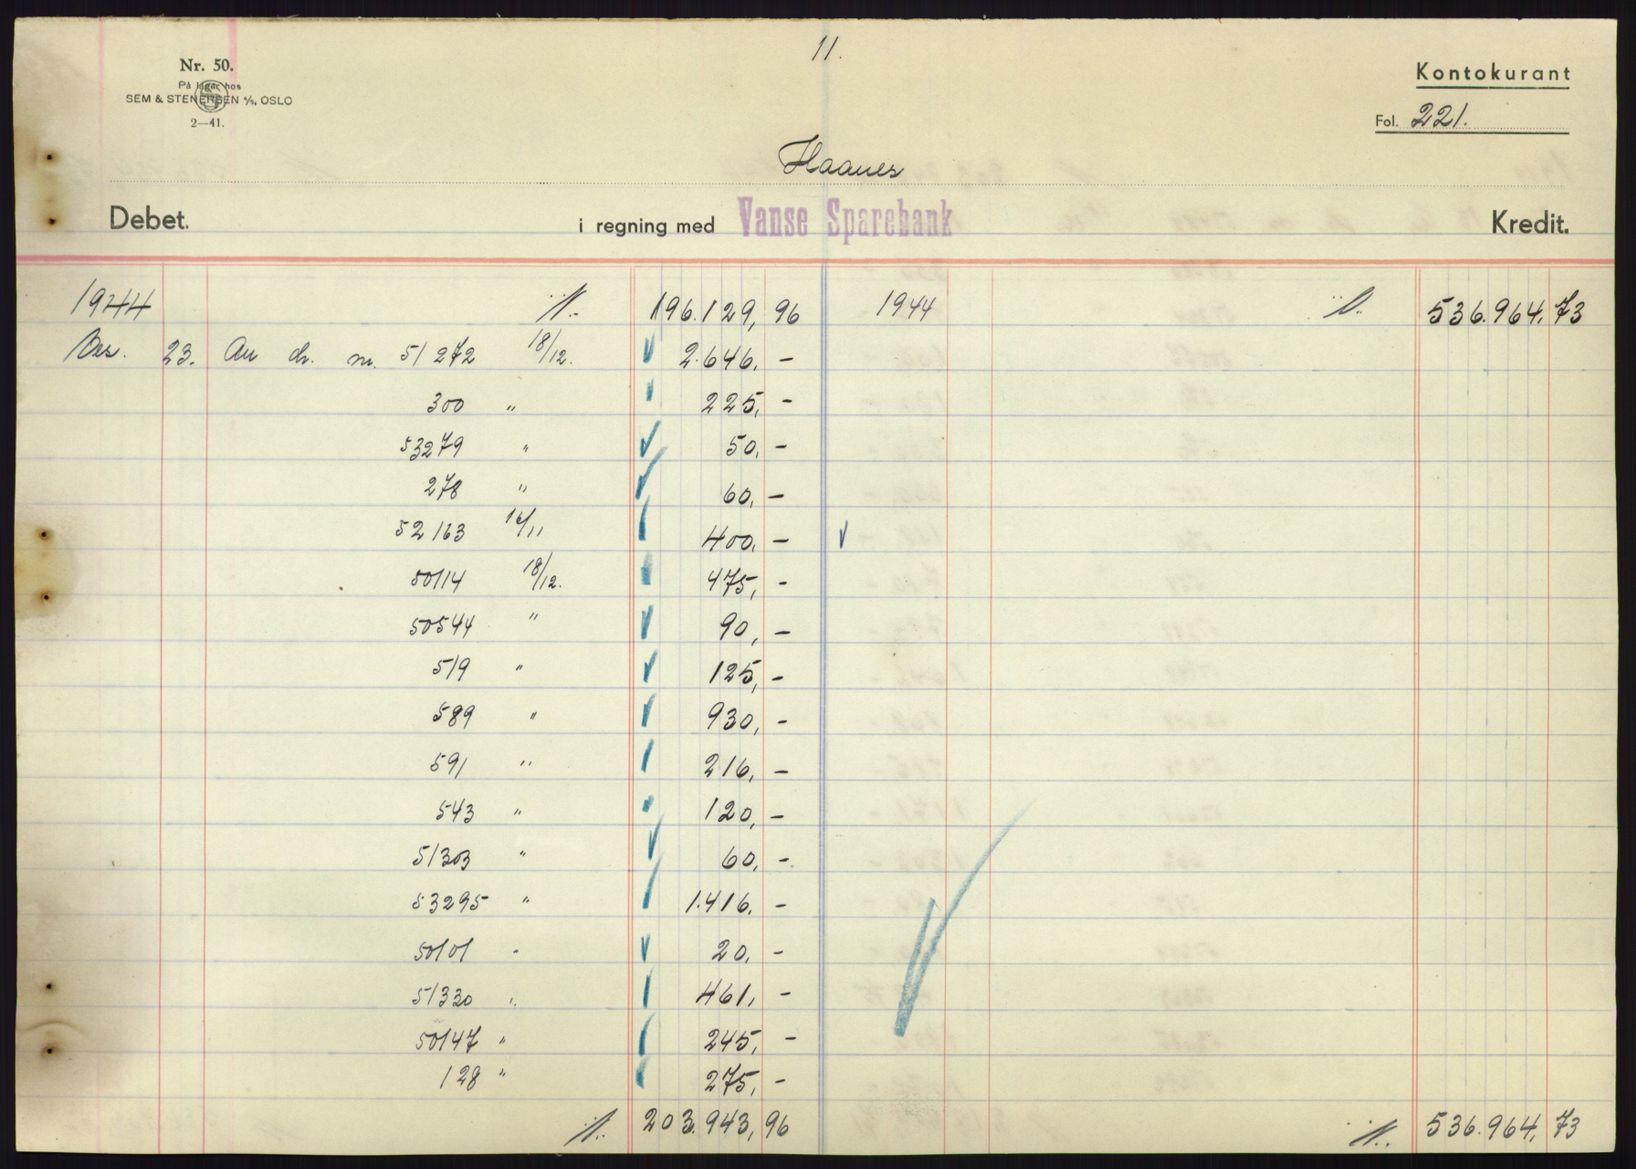 11.
Nr. 50.
På lager hos
SEM & STENERSEN A/S, OSLO
2—41.
Kontokurant
Fol. 221.
Haanes
Debet. i regning med Vanse Sparebank Kredit.
1944 196.129,96 1944 536.964,73
Des. 23. An ch. nr. 51272 18/12. 2.646,-
300 " 225,-
53279 " 50,-
278 " 60,-
52163 16/11 400,-
50114 18/12. 475,-
50544 " 90,-
519 " 125,-
589 " 930,-
591 " 216,-
543 " 120,-
51303 " 60,-
53295 " 1.416,-
50101 " 20,-
51330 " 461,-
50147 " 245,-
128 " 275,-
203.943,96 536.964,73